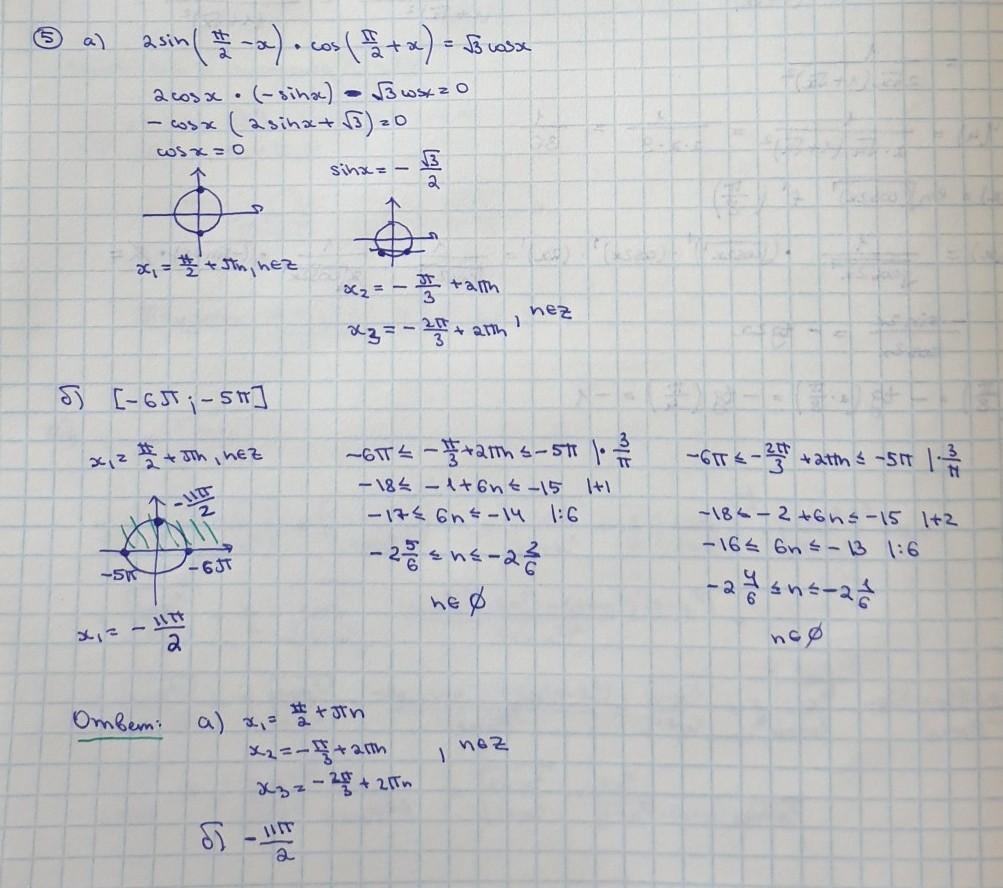 ⑤ а) 2sin(π/2 − x) · cos(π/2 + x) = √3 cosx
2cosx · (−sinx) − √3 cosx = 0
−cosx (2sinx + √3) = 0
cosx = 0
sinx = − √3/2
x₁ = π/2 + πn, n∈Z
x₂ = − π/3 + 2πn
x₃ = − 2π/3 + 2πn , n∈Z
б) [−6π ; −5π]
x₁ = π/2 + πn, n∈Z
−11π/2
−5π −6π
x₁ = − 11π/2
−6π ≤ − π/3 + 2πn ≤ −5π |· 3/π
−18 ≤ −1 + 6n ≤ −15 |+1
−17 ≤ 6n ≤ −14 |:6
−2 5/6 ≤ n ≤ −2 2/6
n∈ ∅
−6π ≤ − 2π/3 + 2πn ≤ −5π |· 3/π
−18 ≤ −2 + 6n ≤ −15 |+2
−16 ≤ 6n ≤ −13 |:6
−2 4/6 ≤ n ≤ −2 1/6
n∈∅
Ответ: а) x₁ = π/2 + πn
x₂ = − π/3 + 2πn , n∈Z
x₃ = − 2π/3 + 2πn
б) − 11π/2